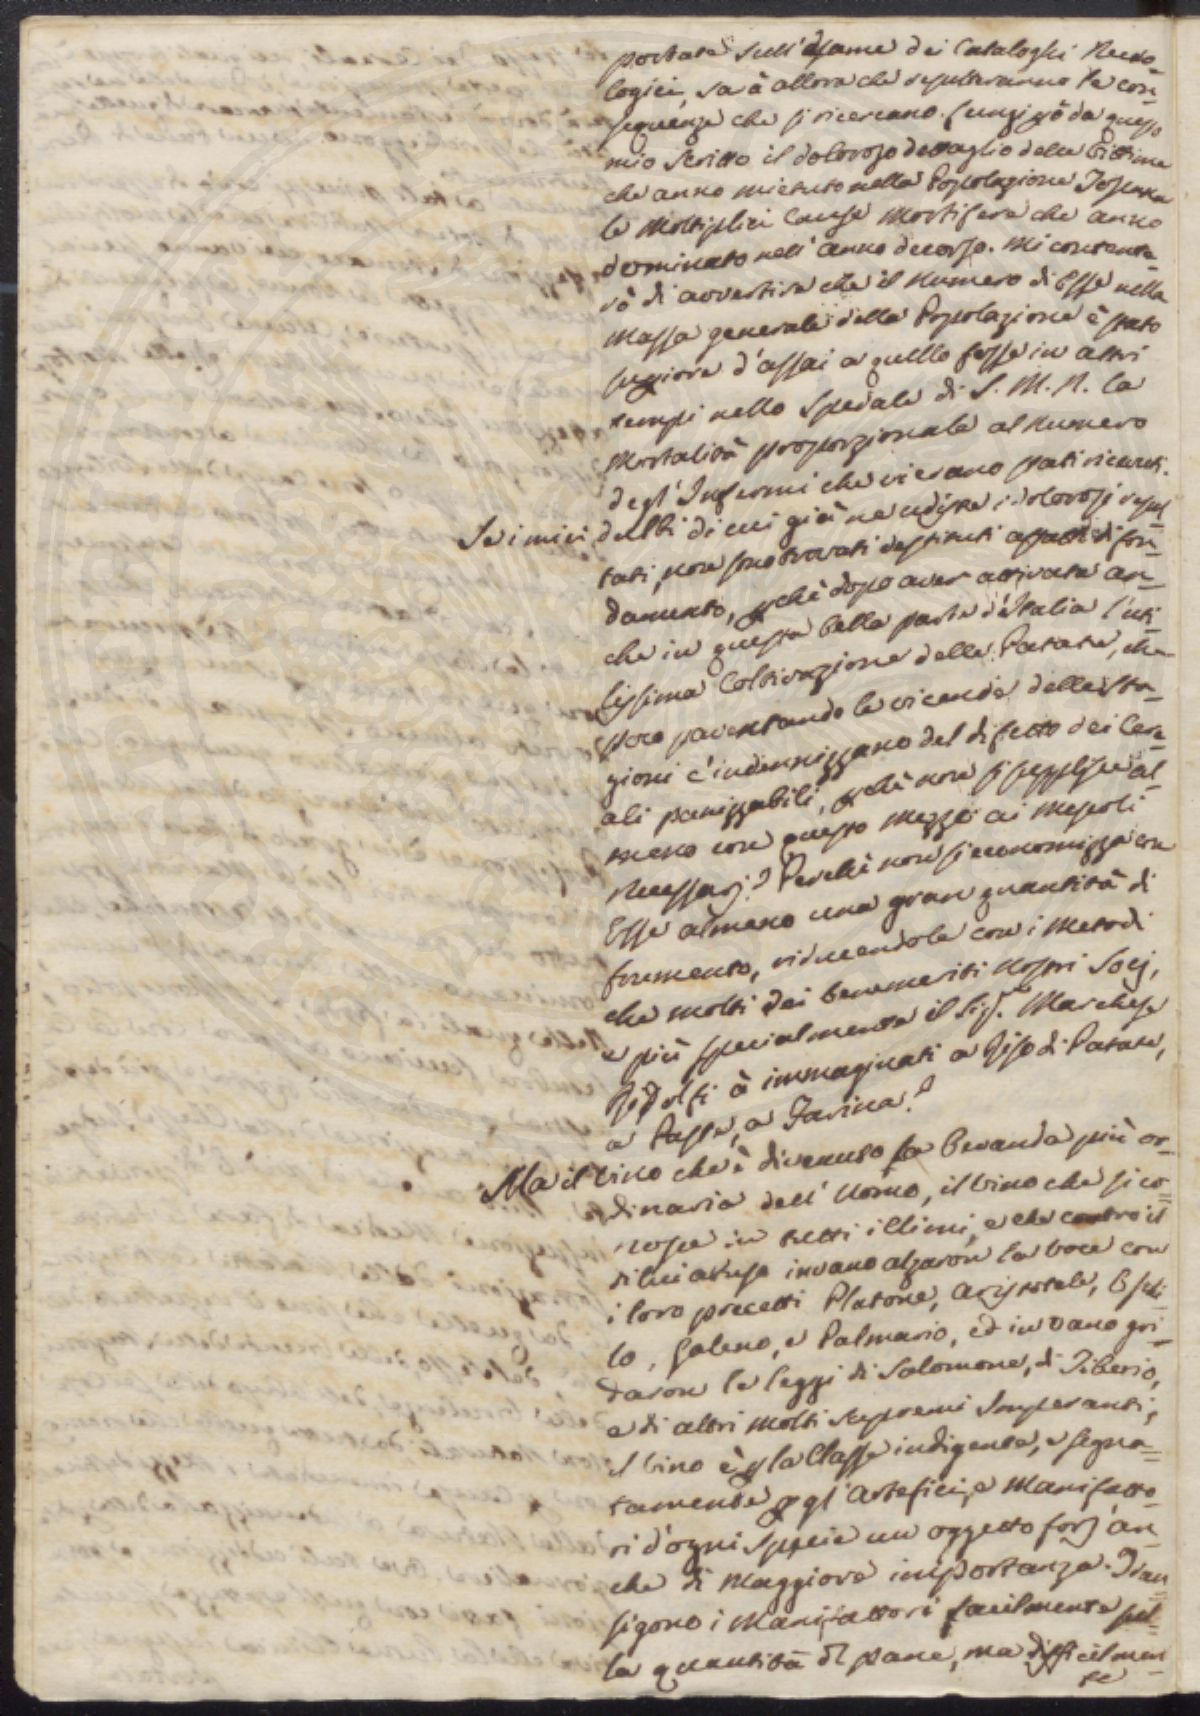 portata sull'esame dei Cataloghi Necro-
logici, sarà allora che resulteranno le con-
seguenze che si ricercano. Lungi però da questo
mio scritto il doloroso dettaglio delle Vittime
che anno mietuto nella Popolazione Toscana
le moltiplici Cause mortifere che anno
dominato nell'anno decorso. Mi contente-
rò di avvertire che il numero di Esse nella
Massa generale della Popolazione è stato
superiore d'assai a quello fosse in altri
tempi nello Spedale di S. M. N. la
Mortalità proporzionale al numero
degl'Infermi che vi erano stati ricevuti.
Se i miei dubbi di cui già ne udiste i dolorosi resul-
tati, non sono trovati destituti affatto di fon-
damento, perchè dopo aver attivata an-
che in questa bella parte d'Italia l'uti-
lissima Coltivazione delle Patate, che
poco paventando le vicende delle Sta-
gioni c'indennizzano del difetto dei Cere-
ali panizzabili, perchè non si supplisce al-
meno con questo mezzo ai mescoli
necessarj? Perchè non si economizza con
Esse almeno una gran quantità di
frumento, riducendole con i metodi
che molti dei benemeriti nostri Socj,
e più specialmente il Sig.re Marchese
Ridolfi à immaginati a Riso di Patate,
a Paste, a Farina?
Ma il Vino che è divenuto la bevanda più or-
dinaria dell'Uomo, il Vino che si co-
nosce in tutti i Climi, e che contro il
di lui abuso invano alzaron la voce con
i loro precetti Platone, Aristotele, Eschi-
lo, Galeno, e Palmario, ed invano gri-
daron le leggi di Salomone, di Tiberio,
e di altri molti supremi Imperanti,
il Vino è per la Classe indigente, e segna-
tamente per gl'Artefici, e Manifatto-
ri d'ogni Specie un oggetto fors'an-
che di maggiore importanza. Tran-
sigono i Manifattori facilmente sul-
la quantità di pane, ma difficilmen-
te